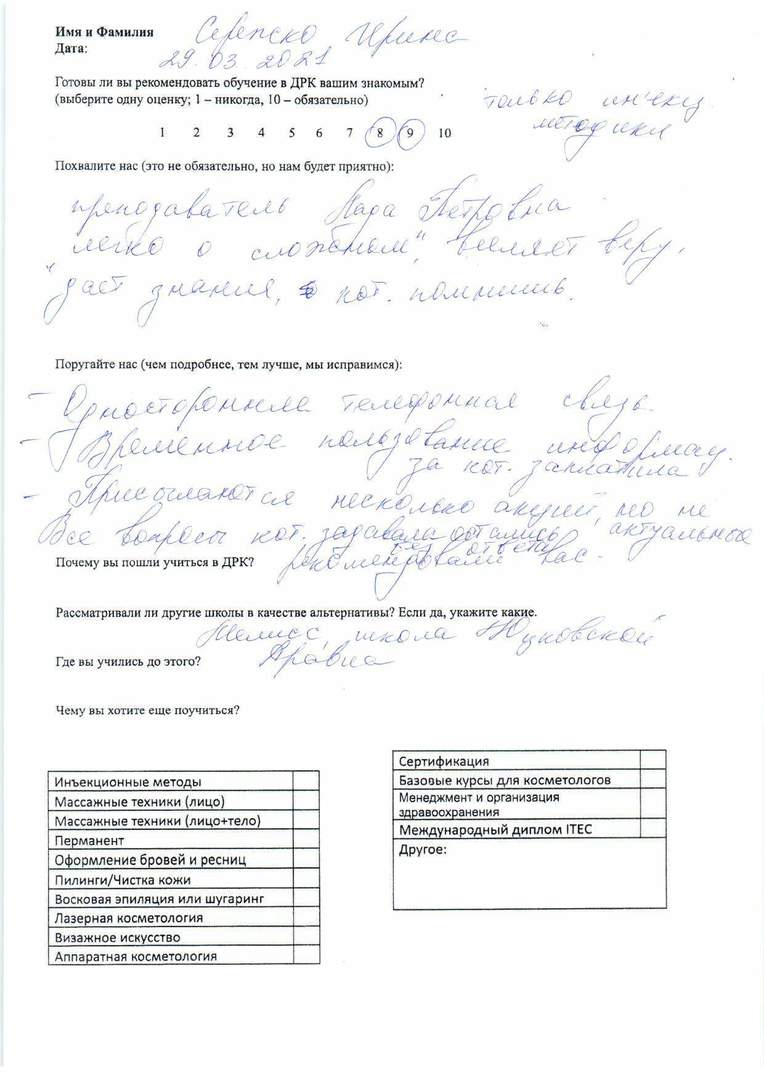 Имя и Фамилия Ирина
Дата: 29.03.2021
Готовы ли вы рекомендовать обучение в ДРК вашим знакомым?
(выберите одну оценку; 1 – никогда, 10 – обязательно)
только ин'екц.
методики
1 2 3 4 5 6 7 8 9 10
Похвалите нас (это не обязательно, но нам будет приятно):
преподаватель Лада Петровна
"легко о сложном", вселяет веру,
дает знания, кот. помнишь.
Поругайте нас (чем подробнее, тем лучше, мы исправимся):
- Односторонняя телефонная связь.
- Временное пользование информац.
за кот. заплатила
- Присылаются несколько акций, но не
актуальные
Все вопросы кот. задавала остались
без ответа
Почему вы пошли учиться в ДРК? рекомендовали вас.
Рассматривали ли другие школы в качестве альтернативы? Если да, укажите какие.
школа Юцковской
Где вы учились до этого? Аравиа
Чему вы хотите еще поучиться?
Инъекционные методы
Массажные техники (лицо)
Массажные техники (лицо+тело)
Перманент
Оформление бровей и ресниц
Пилинги/Чистка кожи
Восковая эпиляция или шугаринг
Лазерная косметология
Визажное искусство
Аппаратная косметология
Сертификация
Базовые курсы для косметологов
Менеджмент и организация
здравоохранения
Международный диплом ITEC
Другое: